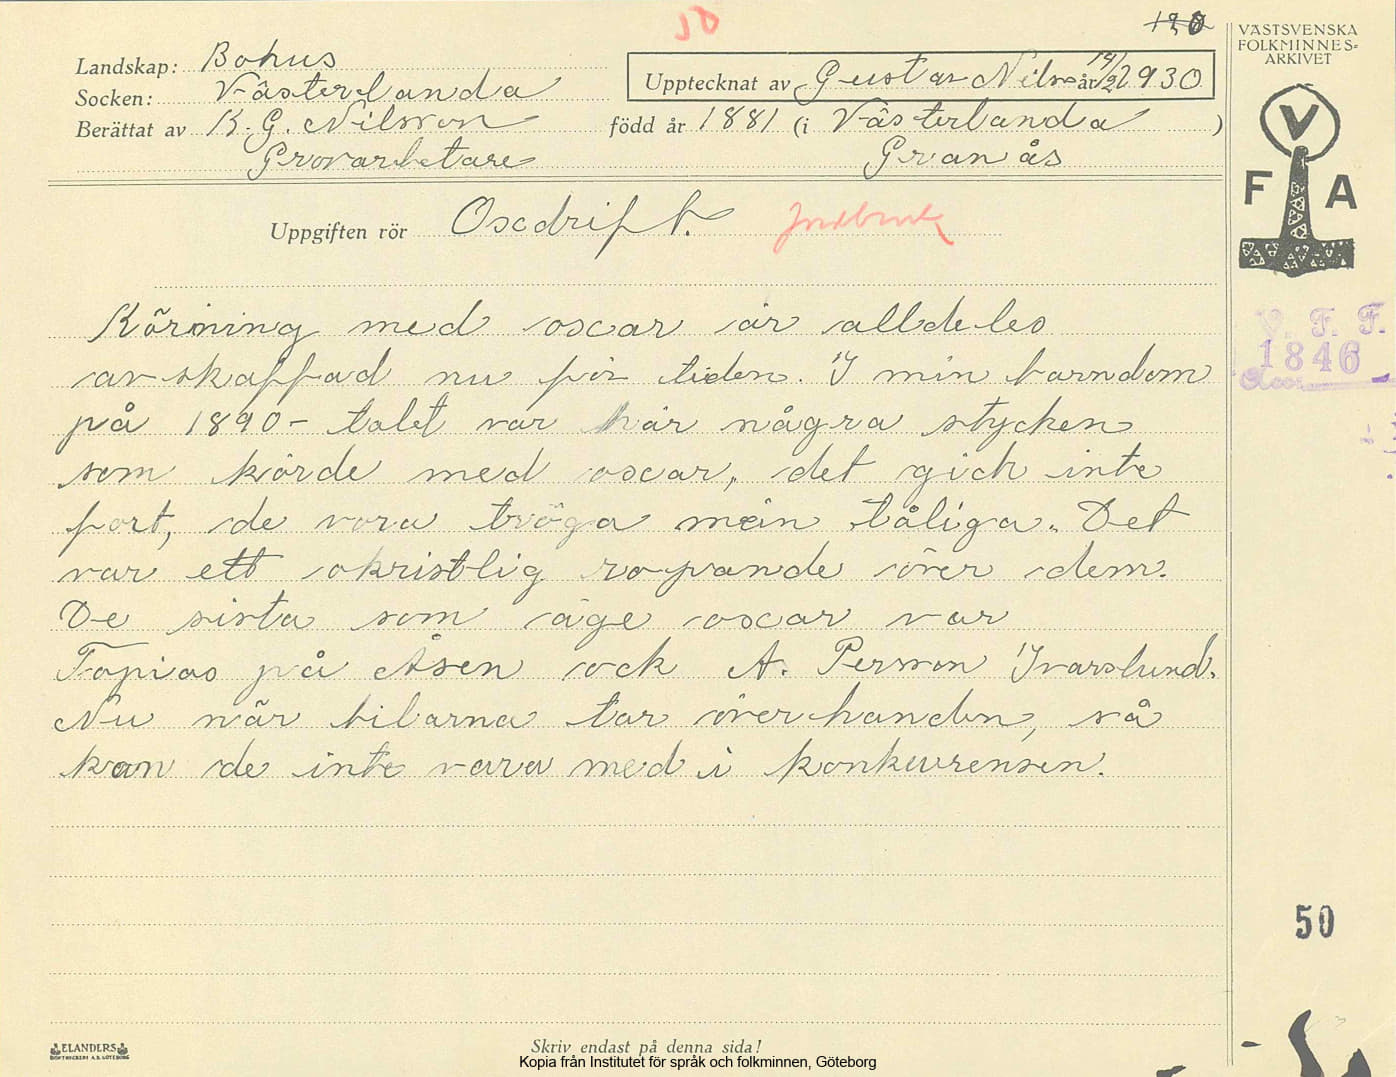 50
120
VÄSTSVENSKA
FOLKMINNES=
ARKIVET
Landskap: Bohus
Socken: Västerlanda
Upptecknat av Gustav Nilsson år 19/2 1930
Berättat av K. G. Nilsson född år 1881 (i Västerlanda )
Grovarbetare Granås
V
F A
Uppgiften rör Oxedrift. Jordbruk
Körning med oxar är alldeles
avskaffad nu för tiden. I min barndom
på 1890-talet var här några stycken
som körde med oxar, det gick inte
fort, de vora tröga men tåliga. Det
var ett okristlig ropande över dem.
De sista som äge oxar var
Topias på Åsen ock A. Persson Ivarslund.
Nu när bilarna tar överhanden, så
kan de inte vara med i konkurrensen.
V. F. F.
1846
Acc.
50
ELANDERS
BOKTRYCKERI A.B. GÖTEBORG
Skriv endast på denna sida!
Kopia från Institutet för språk och folkminnen, Göteborg